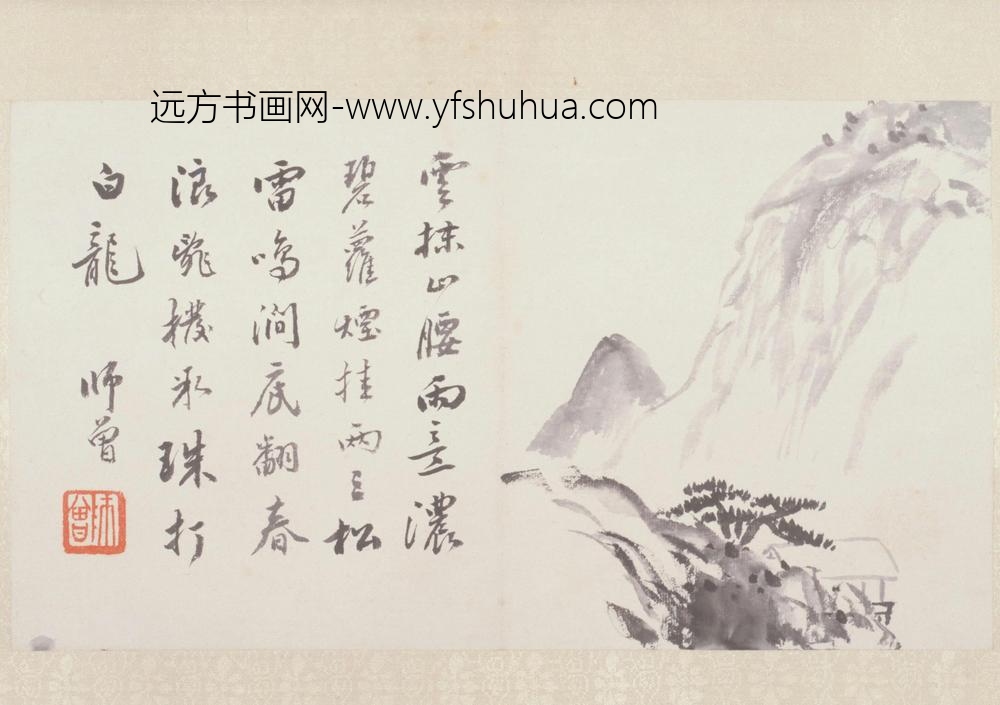 远方书画网-www.yfshuhua.com
雲抹山腰雨意濃
碧蘿煙挂兩三松
雷鳴澗底翻春
浪珠打
白龍 師曾
師曾